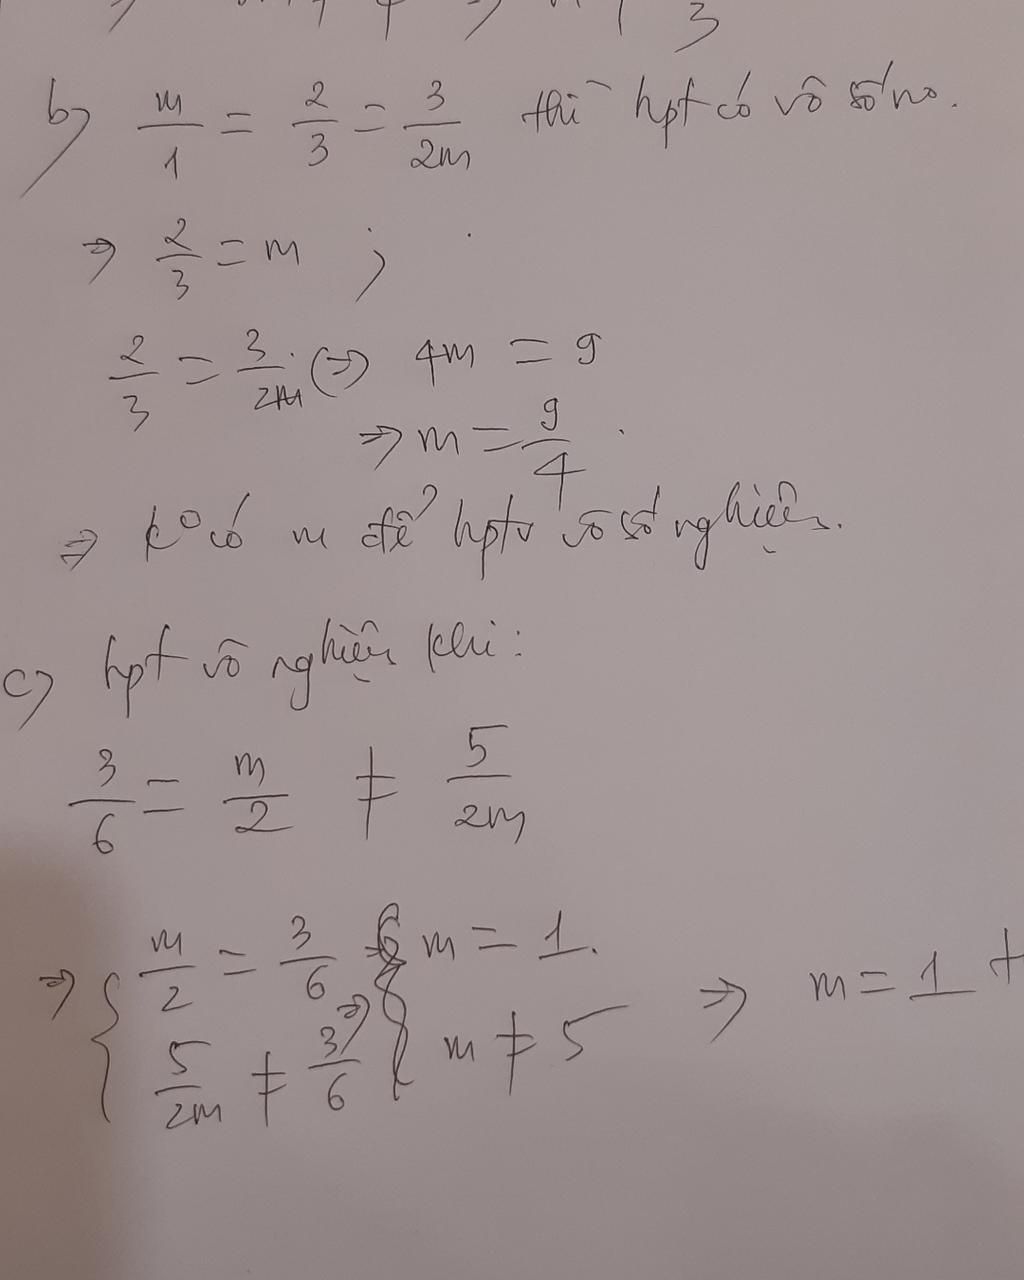 3
b) m/1 = 2/3 = 3/2m thì hpt có vô số no.
⇒ 2/3 = m ;
2/3 = 3/2m (⇒) 4m = 9
⇒ m = 9/4.
⇒ k° có m để hptv vô số nghiệm.
c) hpt vô nghiệm khi:
3/6 = m/2 ≠ 5/2m
⇒ { m/2 = 3/6 ⇒ { m = 1.
5/2m ≠ 3/6 m ≠ 5 ⇒ m = 1 t